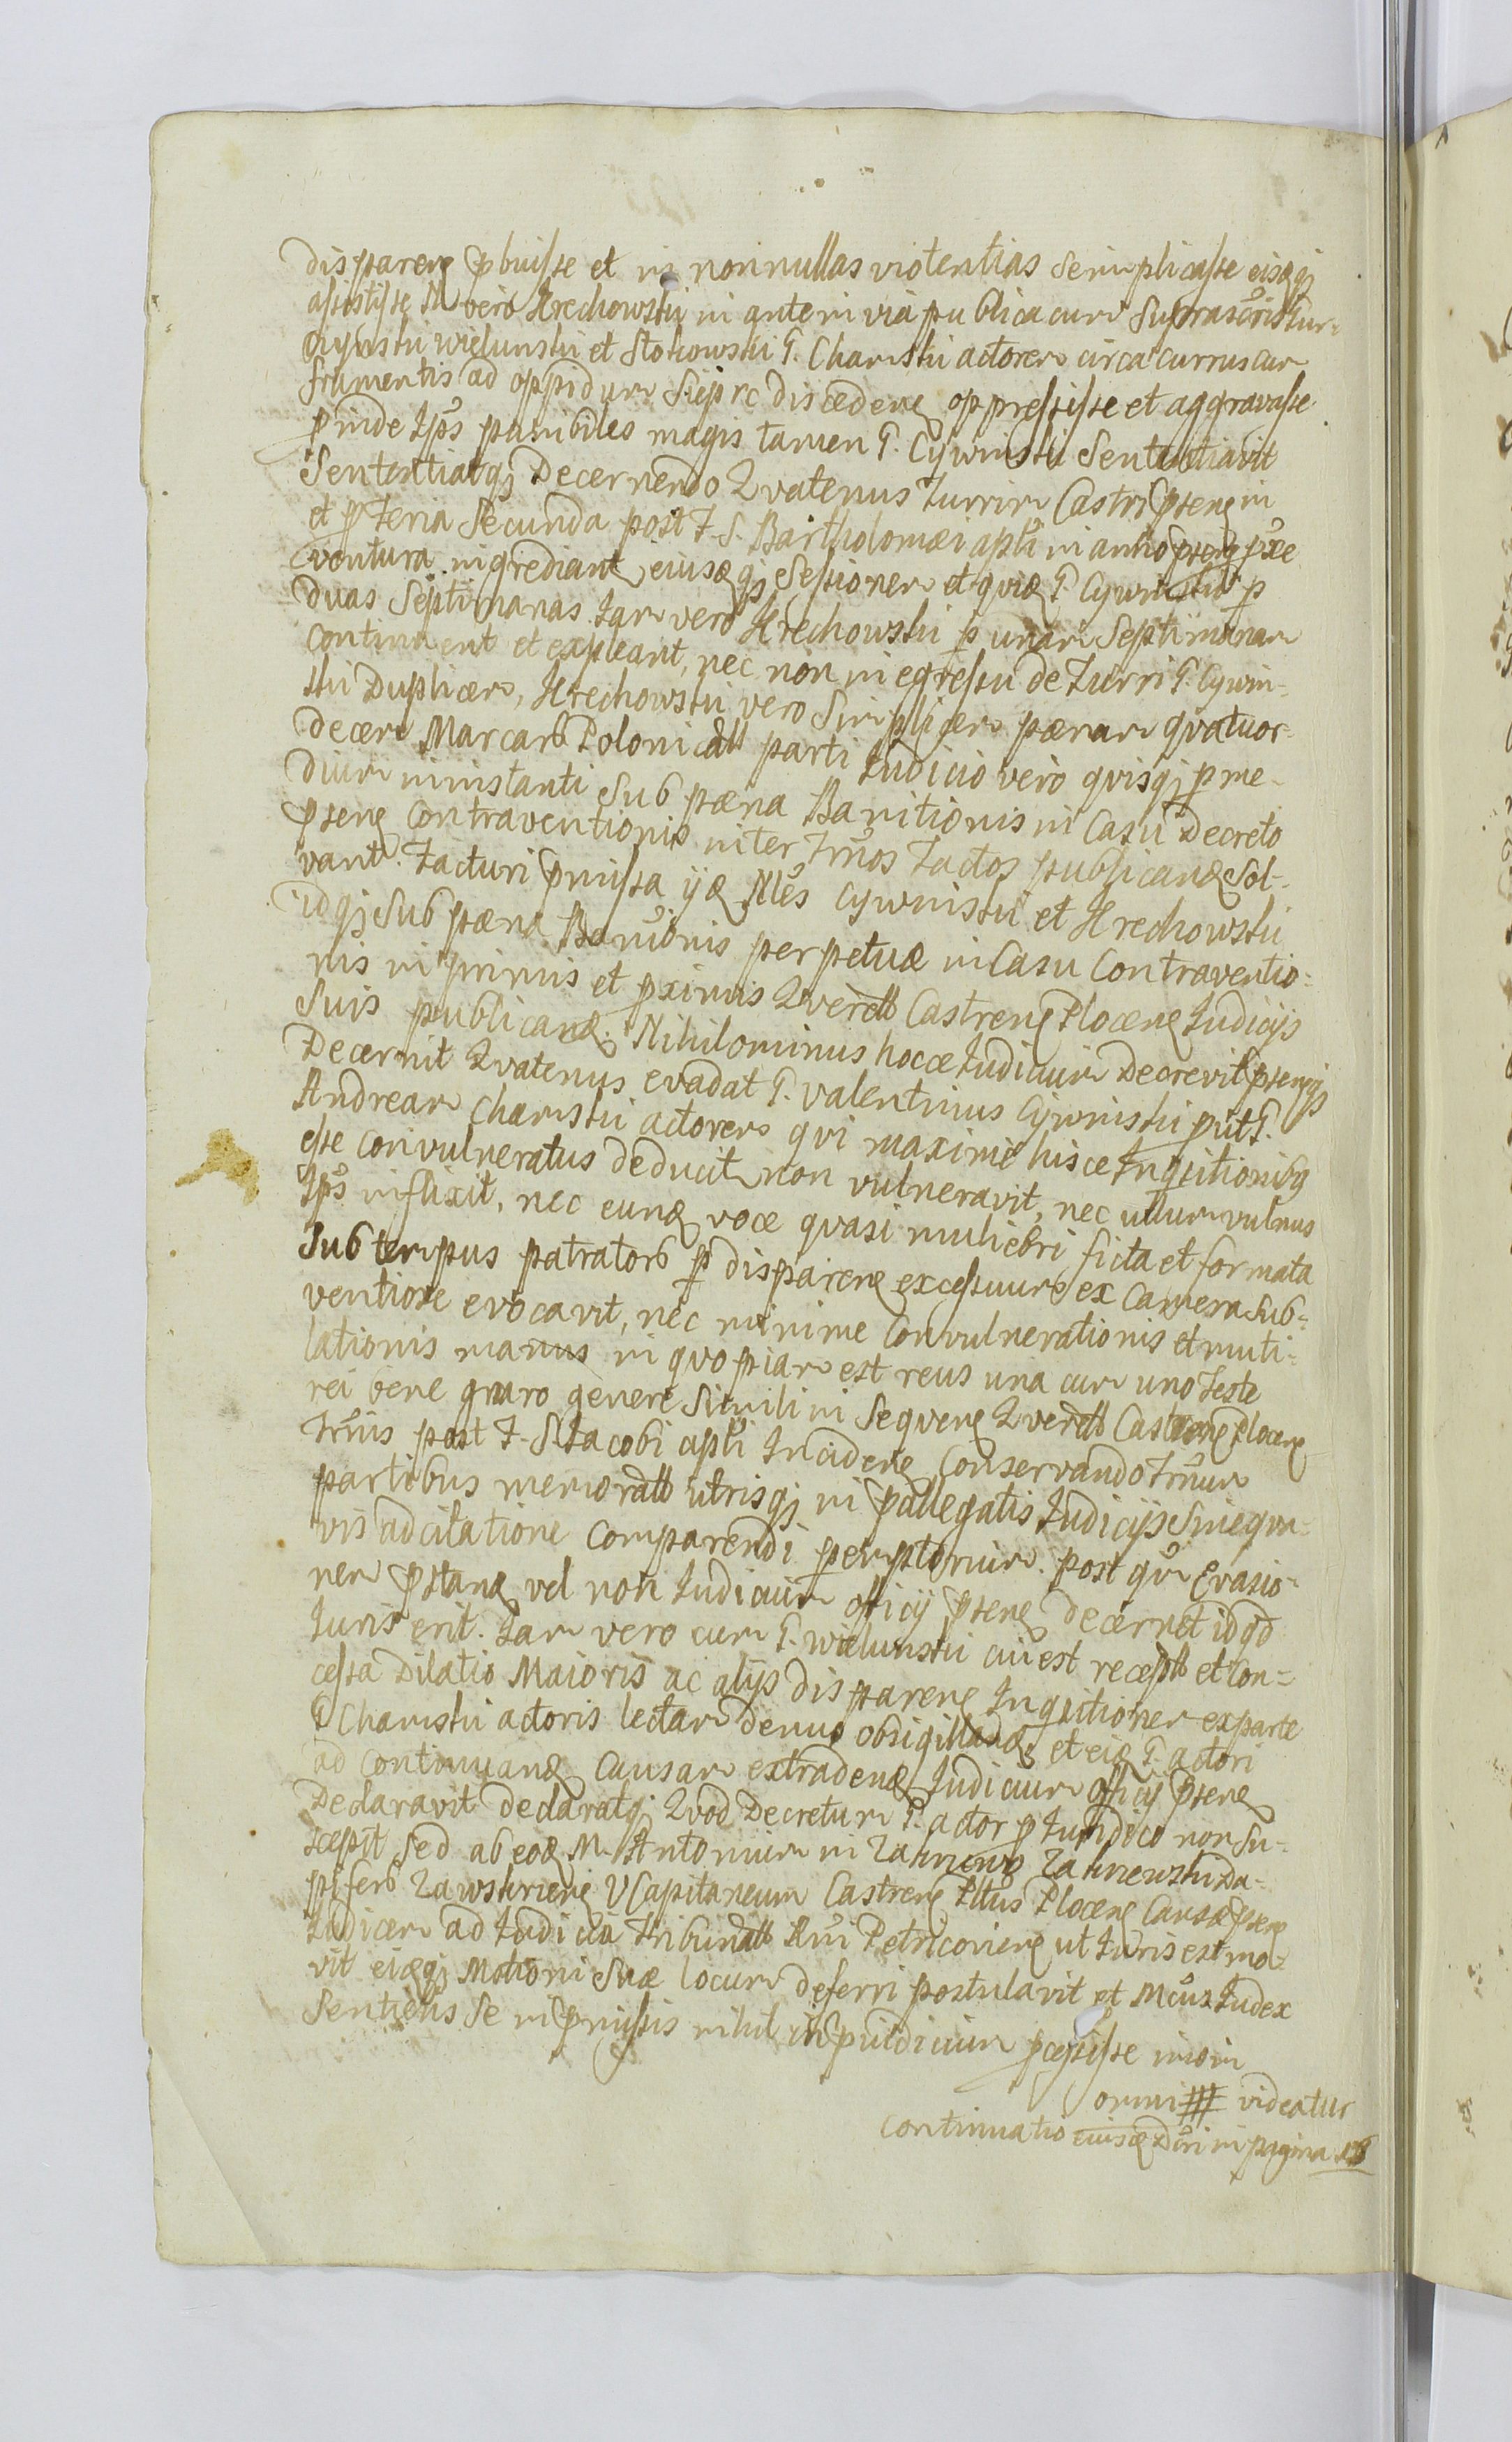 disparen pbuisse et in nonnullas violentias se implicasse eisqȝ
assistisse N vero Hrechowski in ante in via publica cum suprascris Cur=
czynski Wielunski et Stokowski G. Charnski actorem circa currus cum
frumentis ad oppidum Sieprc discedenẽ oppressisse et aggravasse
pinde Ips panibiles magis tamen G. Cywinski Sententiavit
Sententiatqȝ Decernendo Qvatenus Turrim Castri pntenẽ in
et p Feria Secunda post F. S. Bartholomæi apli in anno pntenẽ pxe
ventura ingrediant, eiusqȝ Sessionem et qvid G. Cywinski p
duas Septimanas Iam vero Hrechowski p unam Septimanam
continuent et expleant, nec non in egressu de Turri G. Cywin-
ski Duplicem, Hrechowski vero Simplicem pænam qvatuor=
decem Marcarum Polonicall parti Iudicio vero qvisqȝ p me-
dium ininstanti sub pæna Banitionis in Casu Decreto
pnten Contraventionis inter Trnos Tactos publicand Sol-
vant. Facturi pmissa ijd Nles Cywinski et Hrechowski
idqȝ sub pæna Banionis perpetuæ in Casu Contraventio=
nis in primis et pximis Qverell Castren Plocen Iudicijs
suis publicand. Nihilominus hocce Iudicium Decrevit pntenqȝ
Decernit Qvatenus evadat G. Valentinus Cywinski put G.
Andream Charnski actorem qvi maxime hisce Inqvitionibȝ
esse convulneratus deducit non vulneravit, nec ullum vulnus
Ips inflixit, nec eund voce qvasi muliebri ficta et formata
Sub tempus patratorum p disparen excessuum ex Camera Sub=
ventiose evocavit, nec minime Convulnerationis et muti=
lationis manus in qvopiam est reus una cum uno Teste
rei bene gnaro genere Simili in Seqven Qverell Castren Plocen
Trnis post F. S. Iacobi apli Inciden Conservando Trnum
partibus memorall utrisqȝ in pallegatis Iudicijs Sine qva-
vis adcitatione Comparendi peremptorium. post qu Evasio-
nem pstand vel non Iudicium officij pnten decernet id qd
Iuris erit. Iam vero cum G. Wielunski cui est recepll et Con=
cessa Dilatio Maioris ac alijs disparen Inqvitionem ex parte
G Charnski actoris lectam denuo obsigilland et eid G. actori
ad Continuand Causam extradend Iudicium officij pnten
Declaravit declaratqȝ Qvod Decretum G. actor p Iuridico non su-
scepit Sed ab eod M. Antonium in Zakrzewo Zakrzewski Da-
piferum Zawskrzen VCapitaneum Castren Pltus Plocen Causæ pnten
Iudicem ad Iudicia Tribunall Rni Petricovien ut Iuris est mo-
vit eiqȝ Motioni Suæ locum deferri postulavit et Mcus Iudex
Sentiens se in pmissis nihil inpuridicum pcessisse imo in
omni # videatur
Continuatio eiusd Dcri in pagina 128